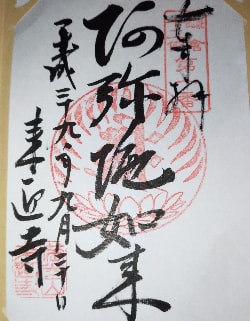 奉拝
阿弥陀如来
平成二九年九月三十日
来迎寺